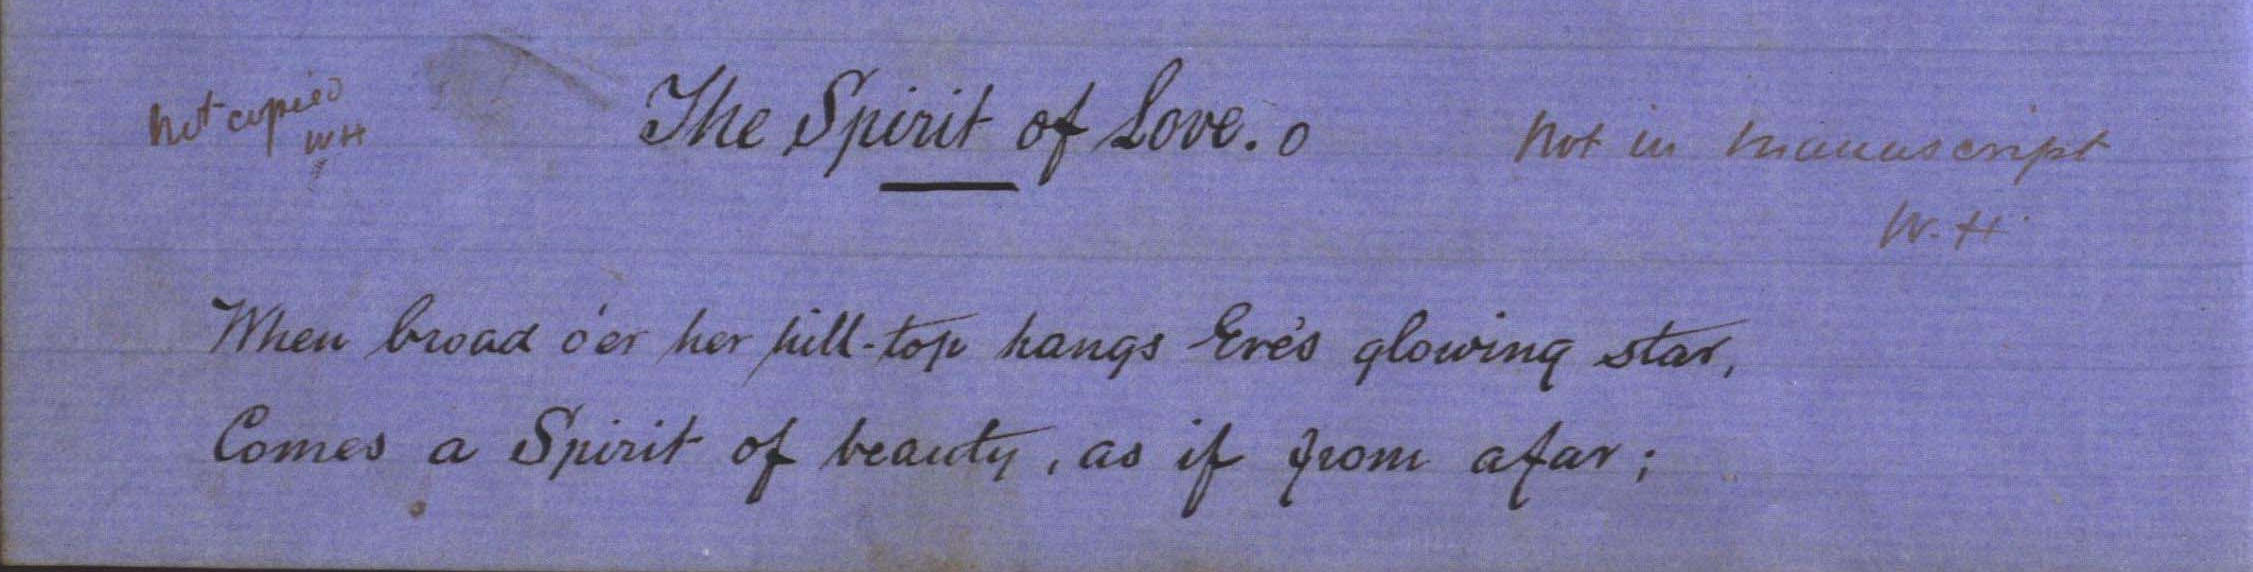 Not copied
WH
The Spirit of Love. o
Not in manuscript
W. H.
When broad o'er her hill-top hangs Eve's glowing star,
Comes a Spirit of beauty, as if from afar;